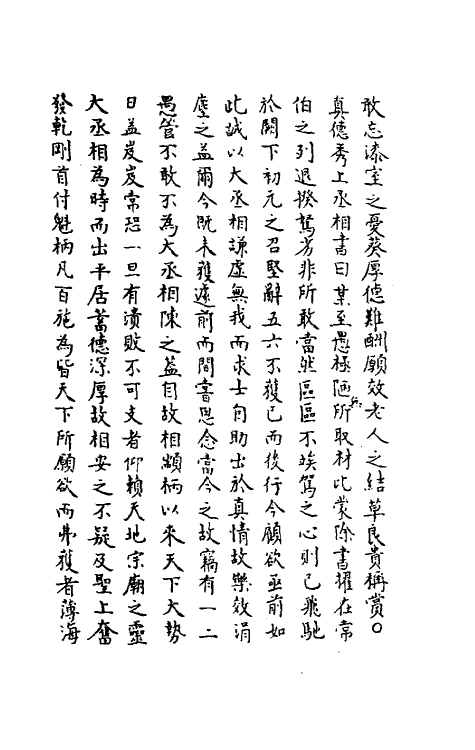 敢忘漆室之憂葵厚德難酬願效老人之結草良貴稱賞〇
真德秀上丞相書曰某至愚極陋無所取材比蒙除書擢在常
伯之列退揆駑劣非所敢當然區區不竢駕之心則已飛馳
於闕下初元之召堅辭五六不獲已而後行今顧欲亟前如
此誠以大丞相謙虛無我而求士自助出於真情故樂效涓
塵之益爾今既未獲遽前而間嘗思念當今之故竊有一二
愚管不敢不為大丞相陳之蓋自故相顓柄以來天下大勢
日益岌岌常恐一旦有潰敗不可支者仰賴天地宗廟之靈
大丞相為時而出平居蓄德深厚故相安之不疑及聖上奮
發乾剛首付魁柄凡百施為皆天下所願欲而弗獲者薄海